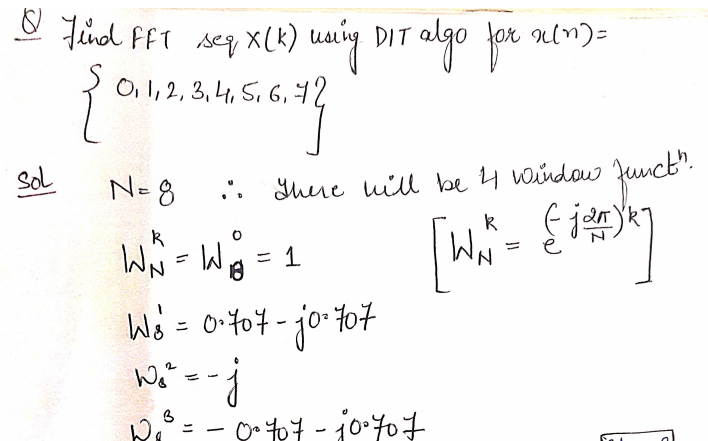 Q Find FFT seq X(k) using DIT algo for x(n)=
{0, 1, 2, 3, 4, 5, 6, 7}
Sol N=8 ∴ There will be 4 window functⁿ.
W_N^k = W_8^0 = 1 [W_N^k = e^(-j2π/N)k]
W_8^1 = 0.707 - j0.707
W_8^2 = -j
W_8^3 = - 0.707 - j0.707